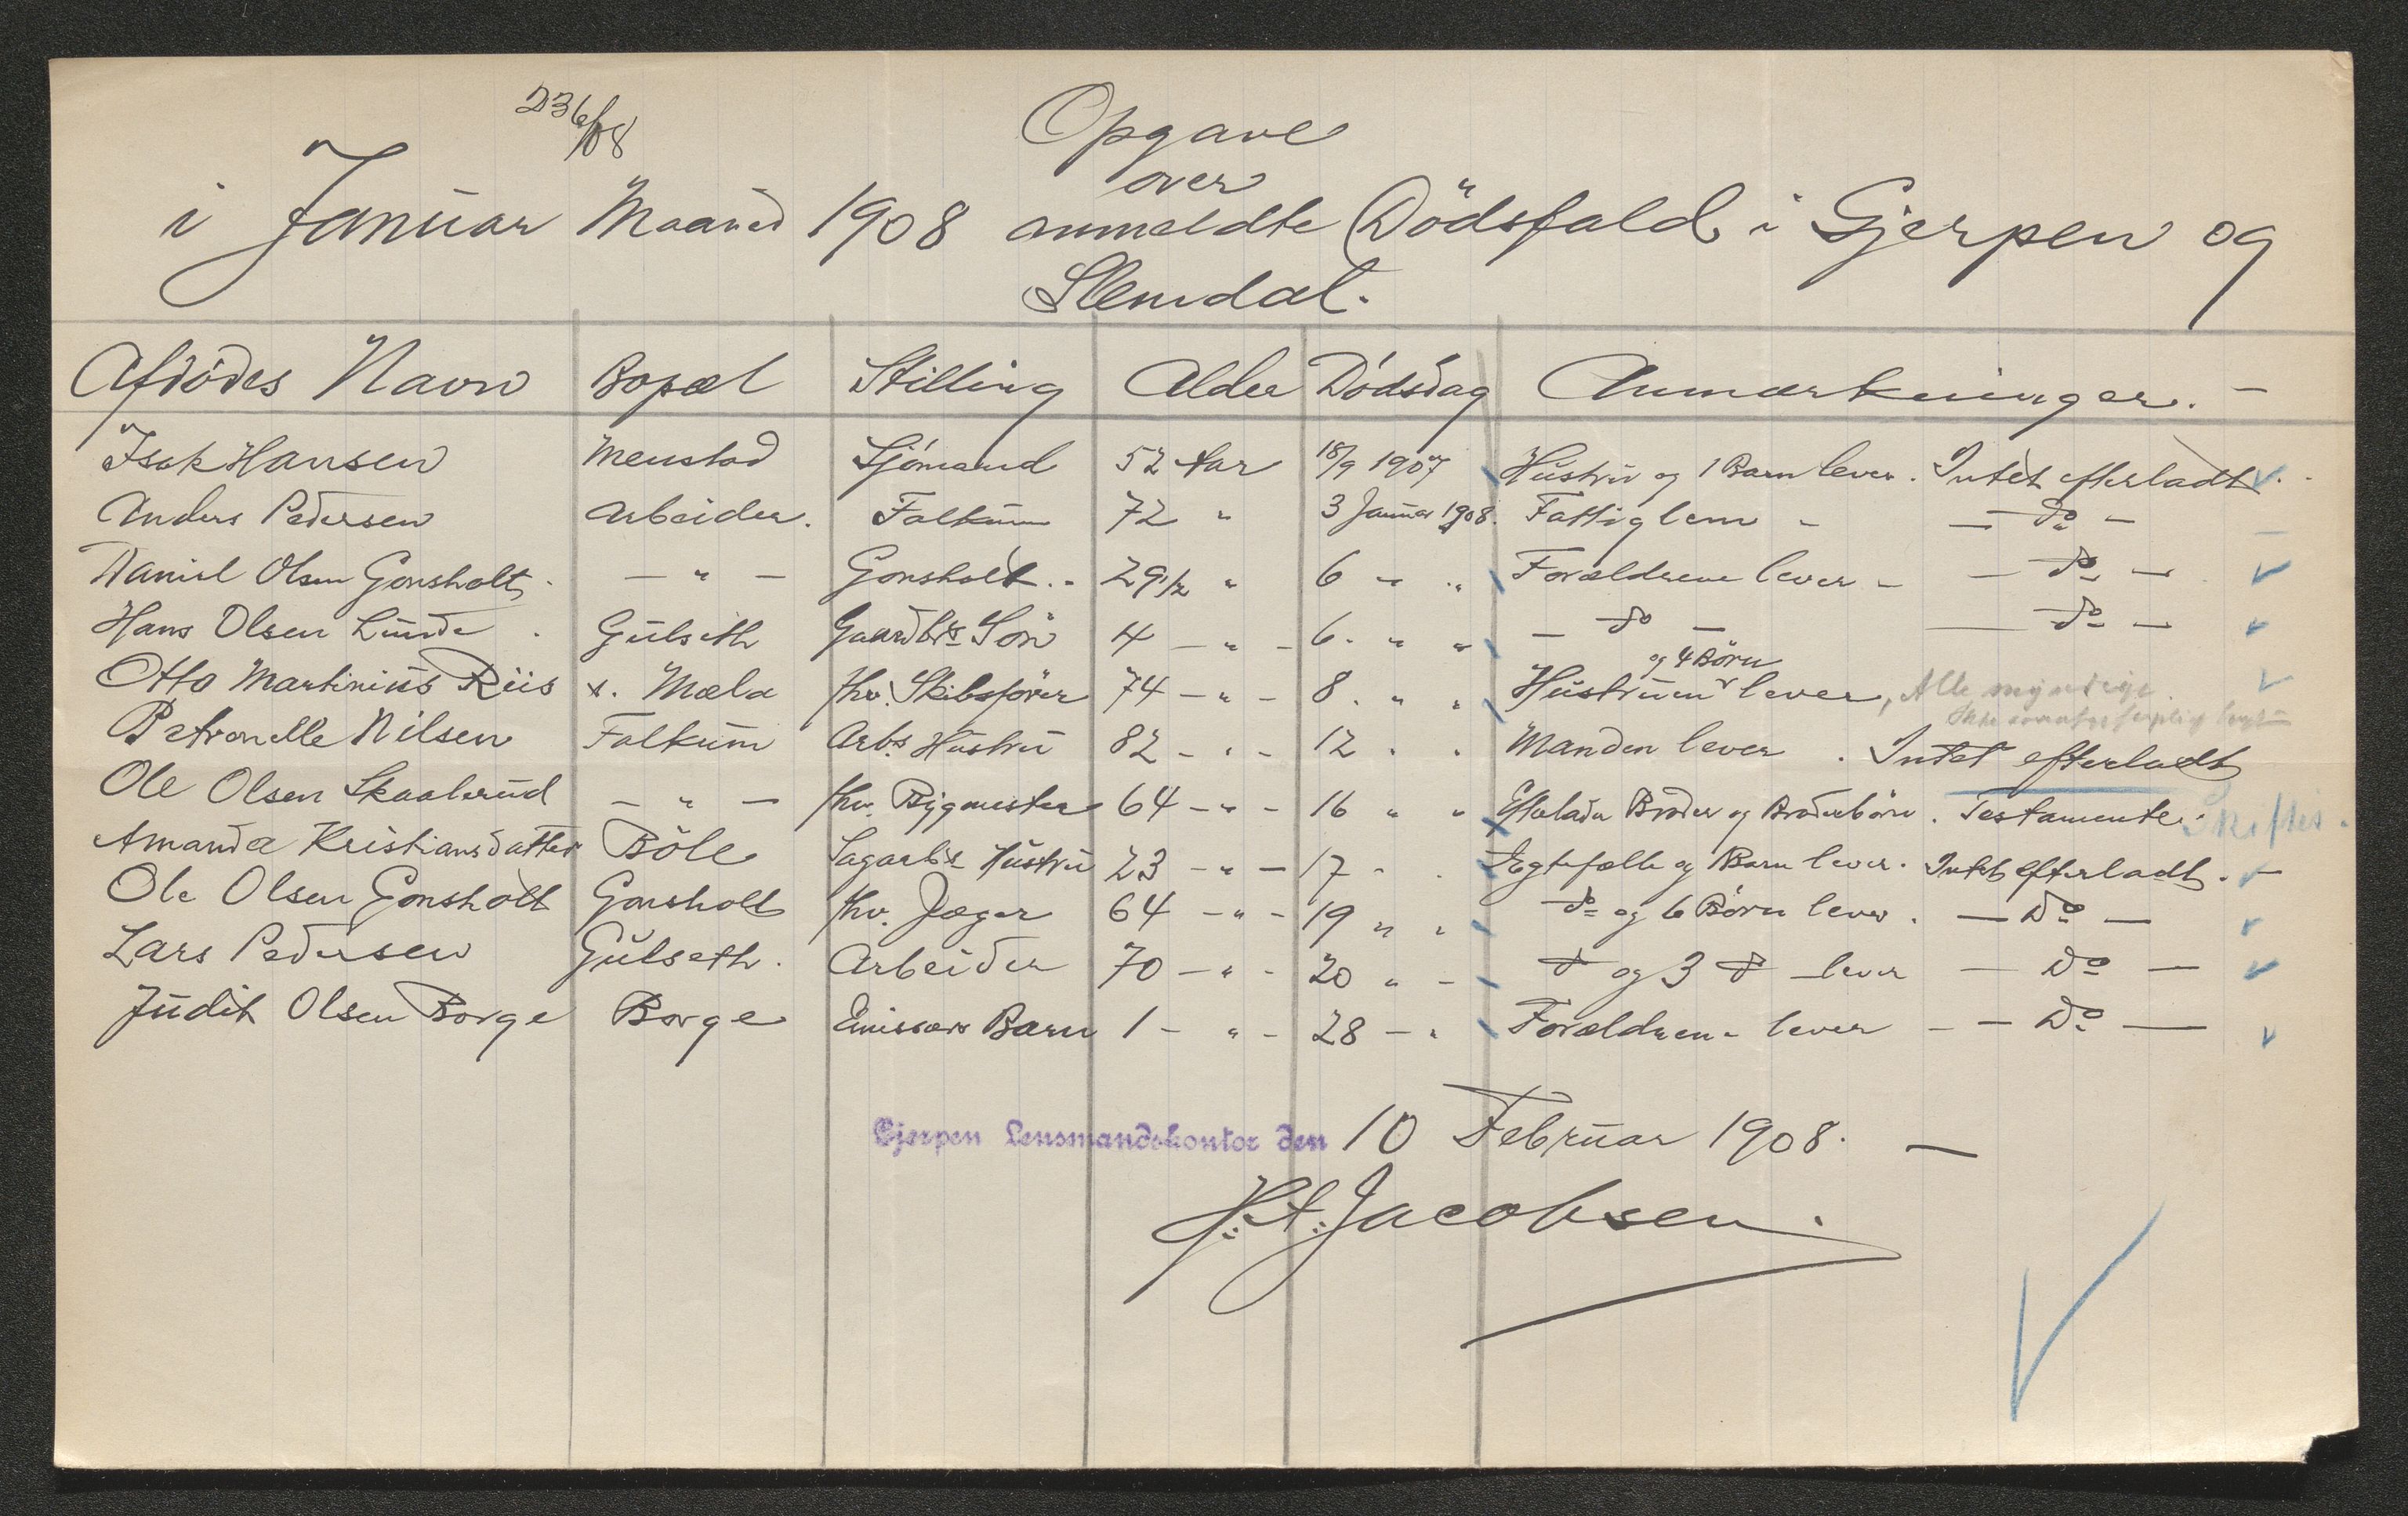 236/08
Opgave
over
i Januar Maaned 1908 anmeldte Dödsfald i Gjerpen og
Slemdal.
Afdödes Navn Bopæl Stilling Alder Dödsdag Anmærkninger. -
Isak Hansen Menstad Sjömand 52 Aar 18/9 1907 Hustru og 1 Barn lever. Intet efterladt.
Anders Pedersen Arbeider. Falkum 72 " 3 Januar 1908. Fattiglem - - Do -
Daniel Olsen Gonsholt. - " - Gonsholt.. 29 1/2 " 6 " " Forældrene lever - - Do -
Hans Olsen Lunde. Gulseth Gaardbrs Sön 4 - " - 6. " " - Do - - Do -
og 4 Börn
Otto Martinius Riis n. Mæla fhv. Skibsförer 74 - " - 8. " " Hustruen lever, Alle myndige.
Petronelle Nilsen Falkum Arbs Hustru 82 - " - 12 " " Manden lever. Intet efterladt
Ole Olsen Skaalerud - " - fhv. Bygmester 64 - " - 16 " " Efterlader Broder og Broderbörn. Testamente. Skiftes.
Amanda Kristiansdatter Böle Sagarbs Hustru 23 - " - 17 " " Egtefælle og 1 Barn lever. Intet efterladt. -
Ole Olsen Gonsholt Gonsholt fhv. Jæger 64 - " - 19 " " Do og 6 Börn lever. - Do -
Lars Pedersen Gulseth. Arbeider 70 - " - 20 " - Do og 3 Do lever - Do -
Judit Olsen Borge Borge Emissærs Barn 1 - " - 28 - " Forældrene lever - - Do -
Gjerpen Lensmandskontor den 10 Februar 1908. -
H. A. Jacobsen.